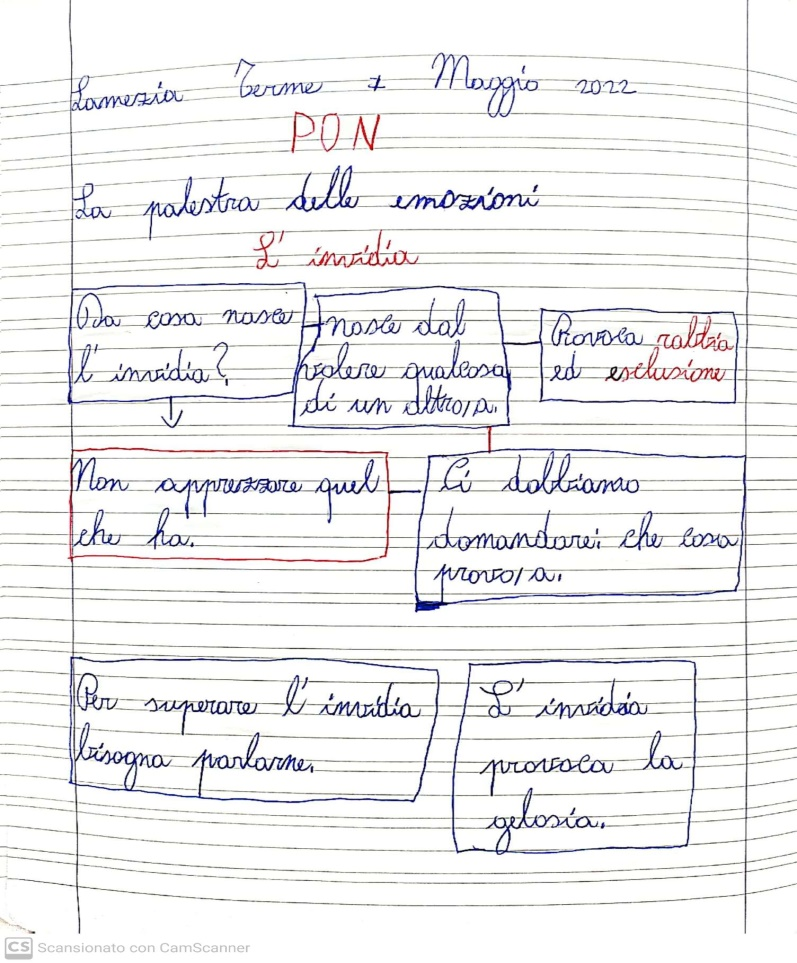 Lamezia Terme 7 Maggio 2022
PON
La palestra delle emozioni
L' invidia
Da cosa nasce
l' invidia?
nasce dal
volere qualcosa
di un altro/a.
Provoca
ed esclusione
Non apprezzare quel
che ha.
Ci dobbiamo
domandare: che cosa
provo/a.
Per superare l' invidia
bisogna parlarne.
L' invidia
provoca la
gelosia.
CS Scansionato con CamScanner